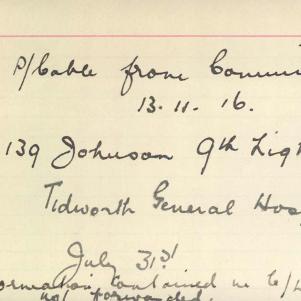 p/Cable from Comm
13.11.16.
139 Johnson 9th Lig
Tidworth General Hos
July 31st
ormation contained in C/L
not forwarded